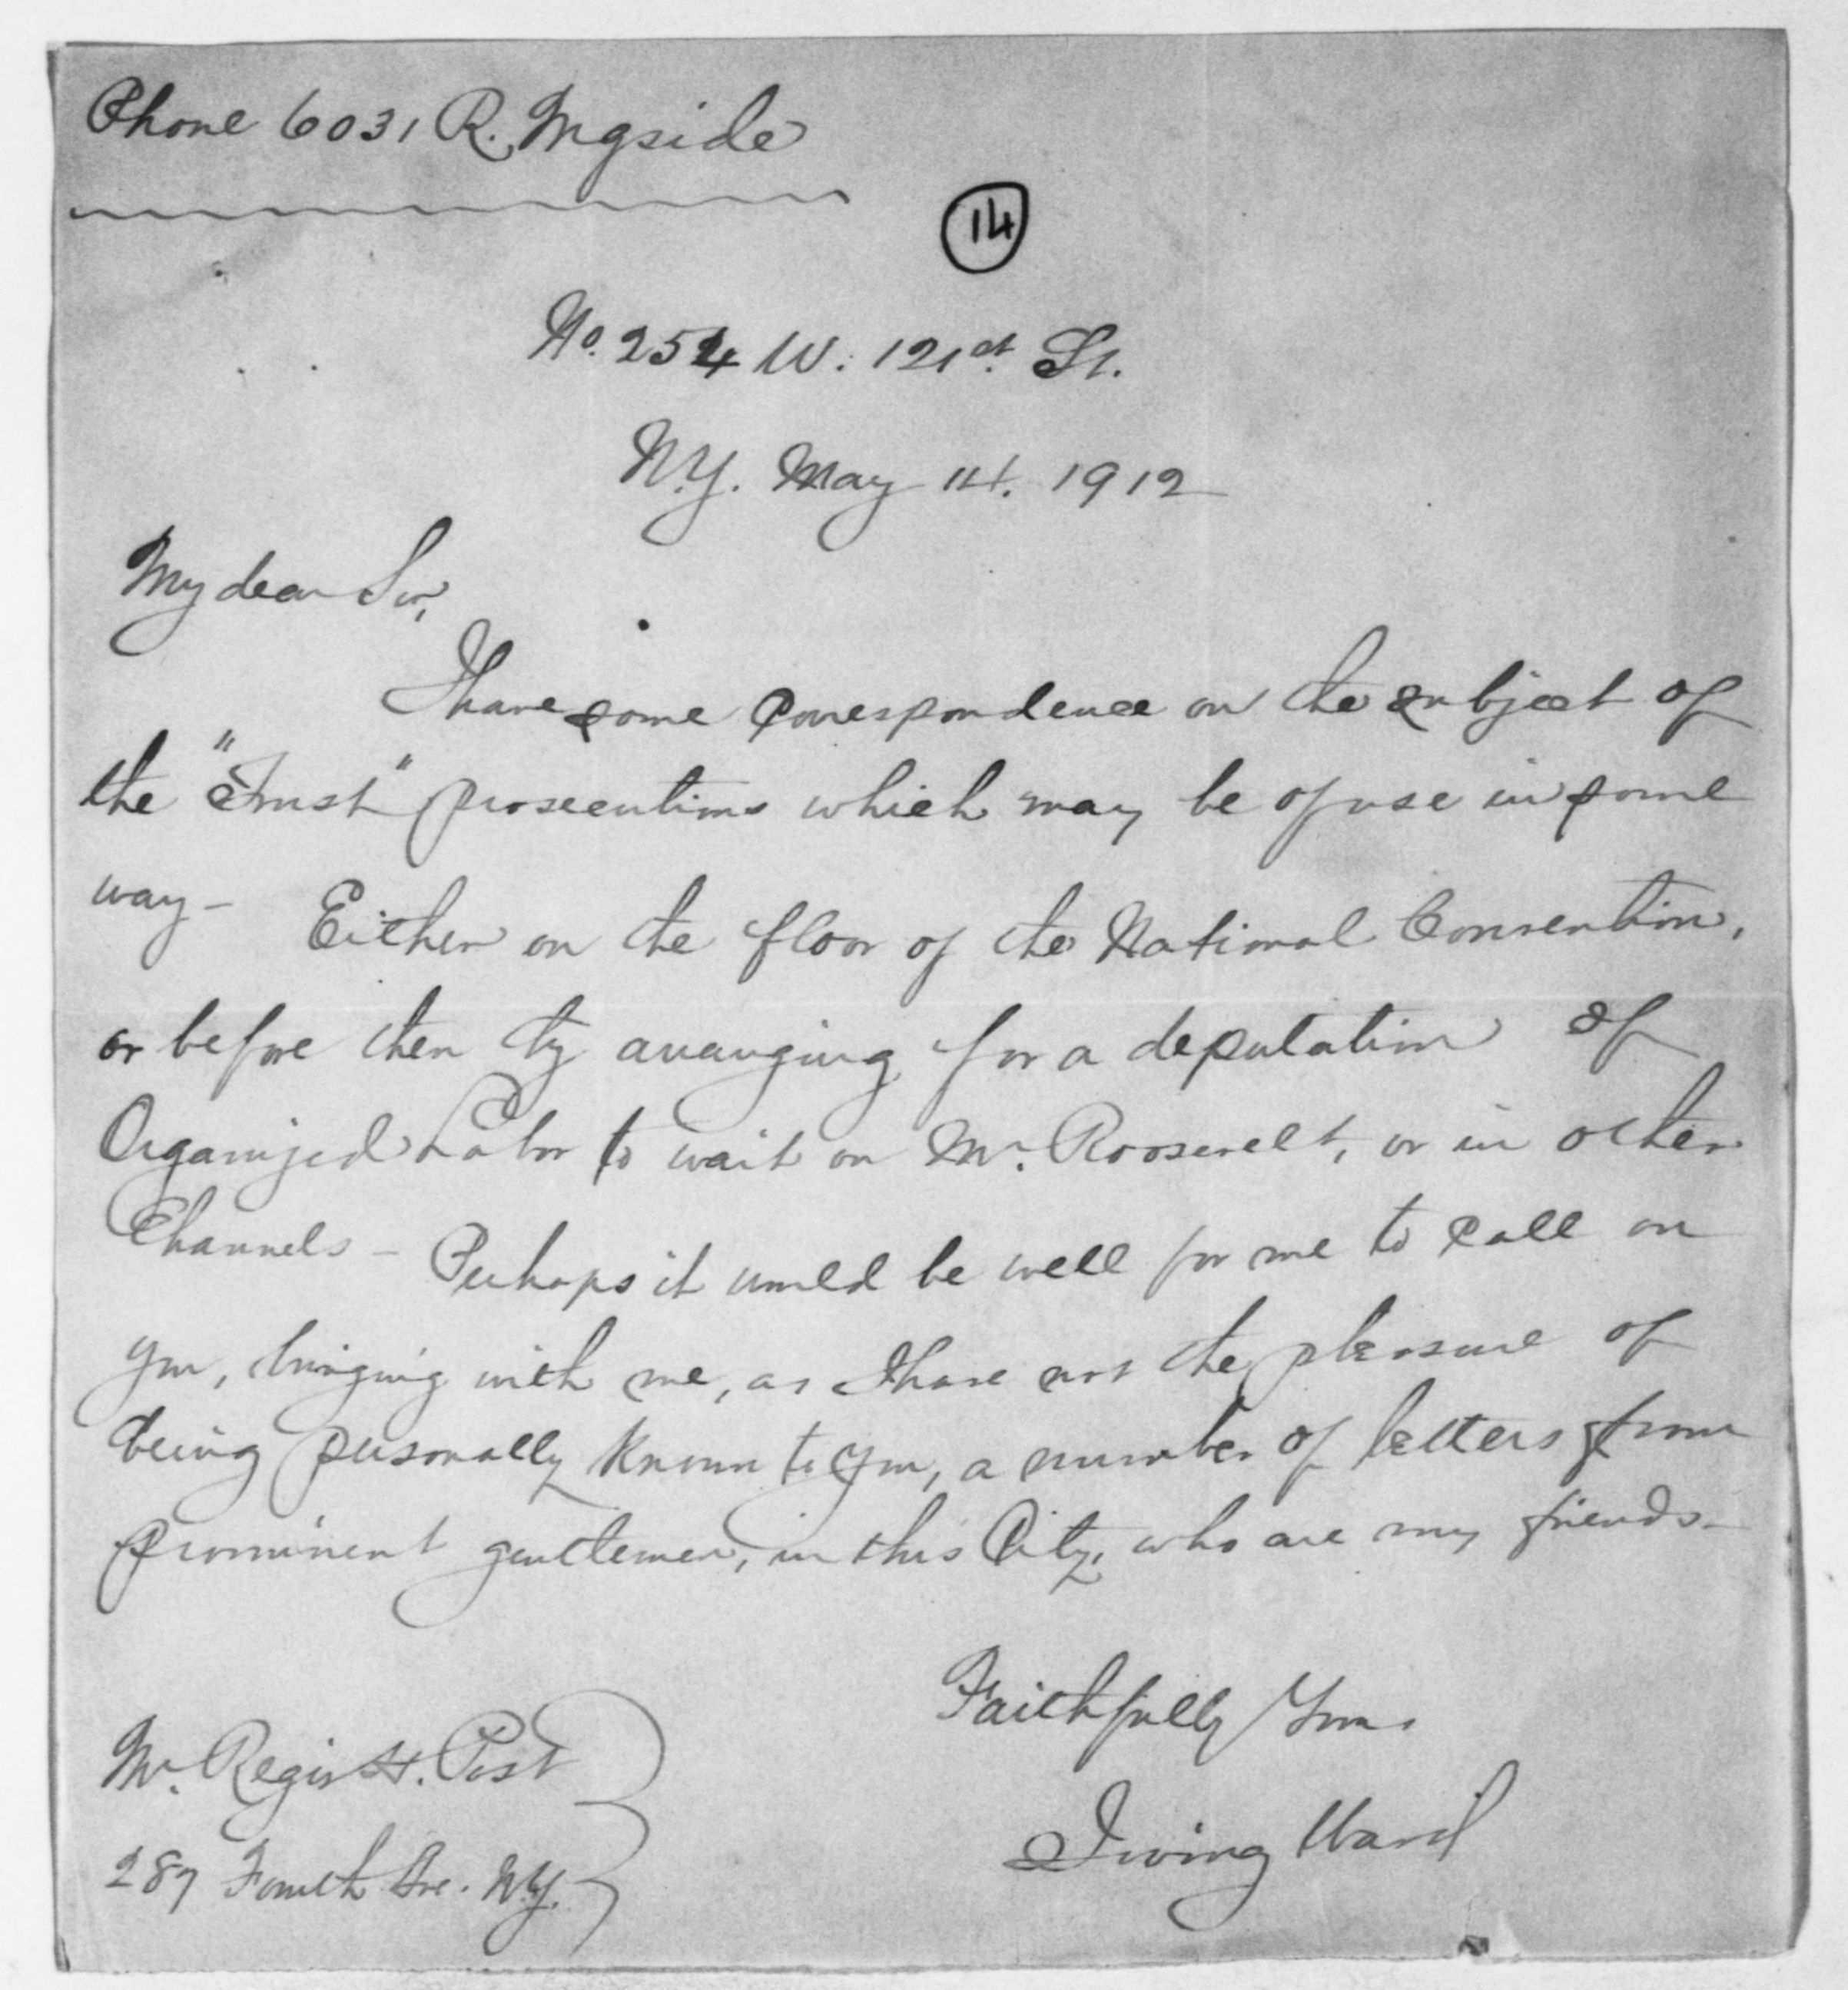 Phone 6031 R. Mgside
14
No. 254 W. 121st. St.
N.Y. May 14. 1912
My dear Sir,
I have some correspondence on the subject of
the "Trust" prosecutions which may be of use in some
way - Either on the floor of the National Convention,
or before then by arranging for a deputation of
Organized Labor to wait on Mr. Roosevelt, or in other
Channels - Perhaps it would be well for me to call on
you, bringing with me, as I have not the pleasure of
being personally known to you, a number of letters from
prominent gentlemen, in this City, who are my friends -
Faithfully Yours
Irving Ward
Mr. Regis H. Post
287 Fourth Ave. N.Y.